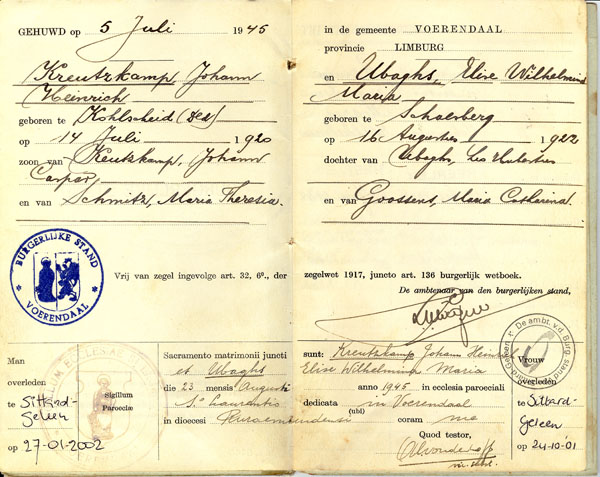 GEHUWD op 5 Juli 1945
Kreutzkamp, Johann
Heinrich
geboren te Kohlscheid (Dld)
op 14 Juli 1920
zoon van Kreutzkamp, Johann
Caspar
en van Schmitz, Maria Theresia.
BURGERLIJKE STAND
VOERENDAAL
Vrij van zegel ingevolge art. 32, 6°., der
Man
overleden
te Sittard-
Geleen
op 27-01-2002
SIGILLUM ECCLESIAE
Sigillum
Parociæ
Sacramentum matrimonii juncti
et Ubaghs
die 23 mensis Augusti
S. Laurentio
in dioecesi Ruraemundensi
in de gemeente VOERENDAAL
provincie LIMBURG
en Ubaghs, Elise Wilhelmina
Maria
geboren te Schaesberg
op 16 Augustus 1922
dochter van Ubaghs, Leo Hubertus
en van Goossens, Maria Catharina.
zegelwet 1917, juncto art. 136 burgerlijk wetboek.
De ambtenaar van den burgerlijken stand,
sunt: Kreutzkamp Johann Heinrich
Elise Wilhelmina Maria
anno 1945 in ecclesia paroeciali
dedicata in Voerendaal
(ubi) coram me
Quod testor,
De ambt. v.d. Burg. stand
Sittard-Geleen
Vrouw
overleden
te Sittard-
Geleen
op 24-10-'01